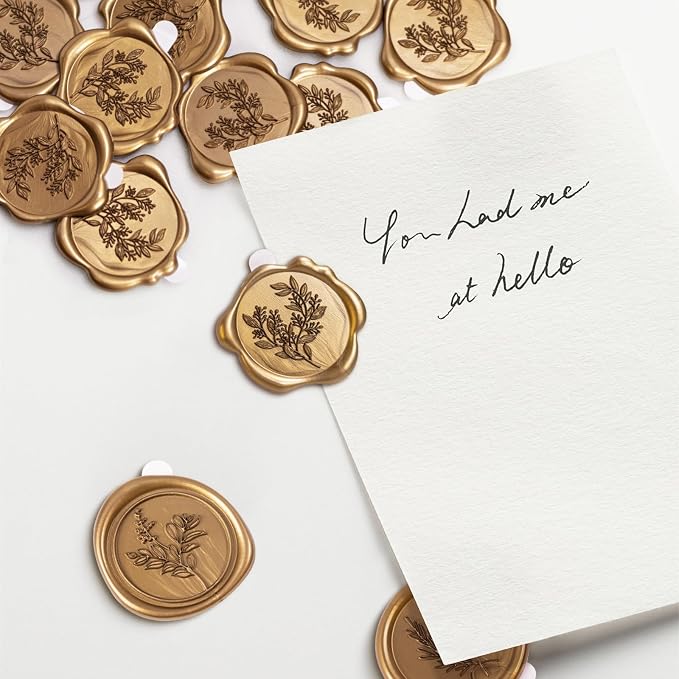 You had me
at hello